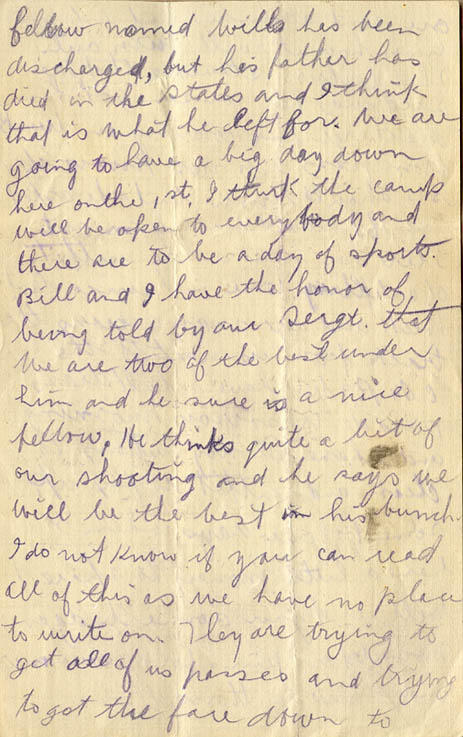 fellow named Wills has been
discharged, but his father has
died in the states and I think
that is what he left for. We are
going to have a big day down
here on the 1st, I think the camp
will be open to everybody and
there are to be a day of sports.
Bill and I have the honor of
being told by our Sergt. that
we are two of the best under
him and he sure is a nice
fellow, He thinks quite a bit of
our shooting and he says we
will be the best in his bunch.
I do not know if you can read
all of this as we have no place
to write on. They are trying to
get all of us passes and trying
to get the fare down to